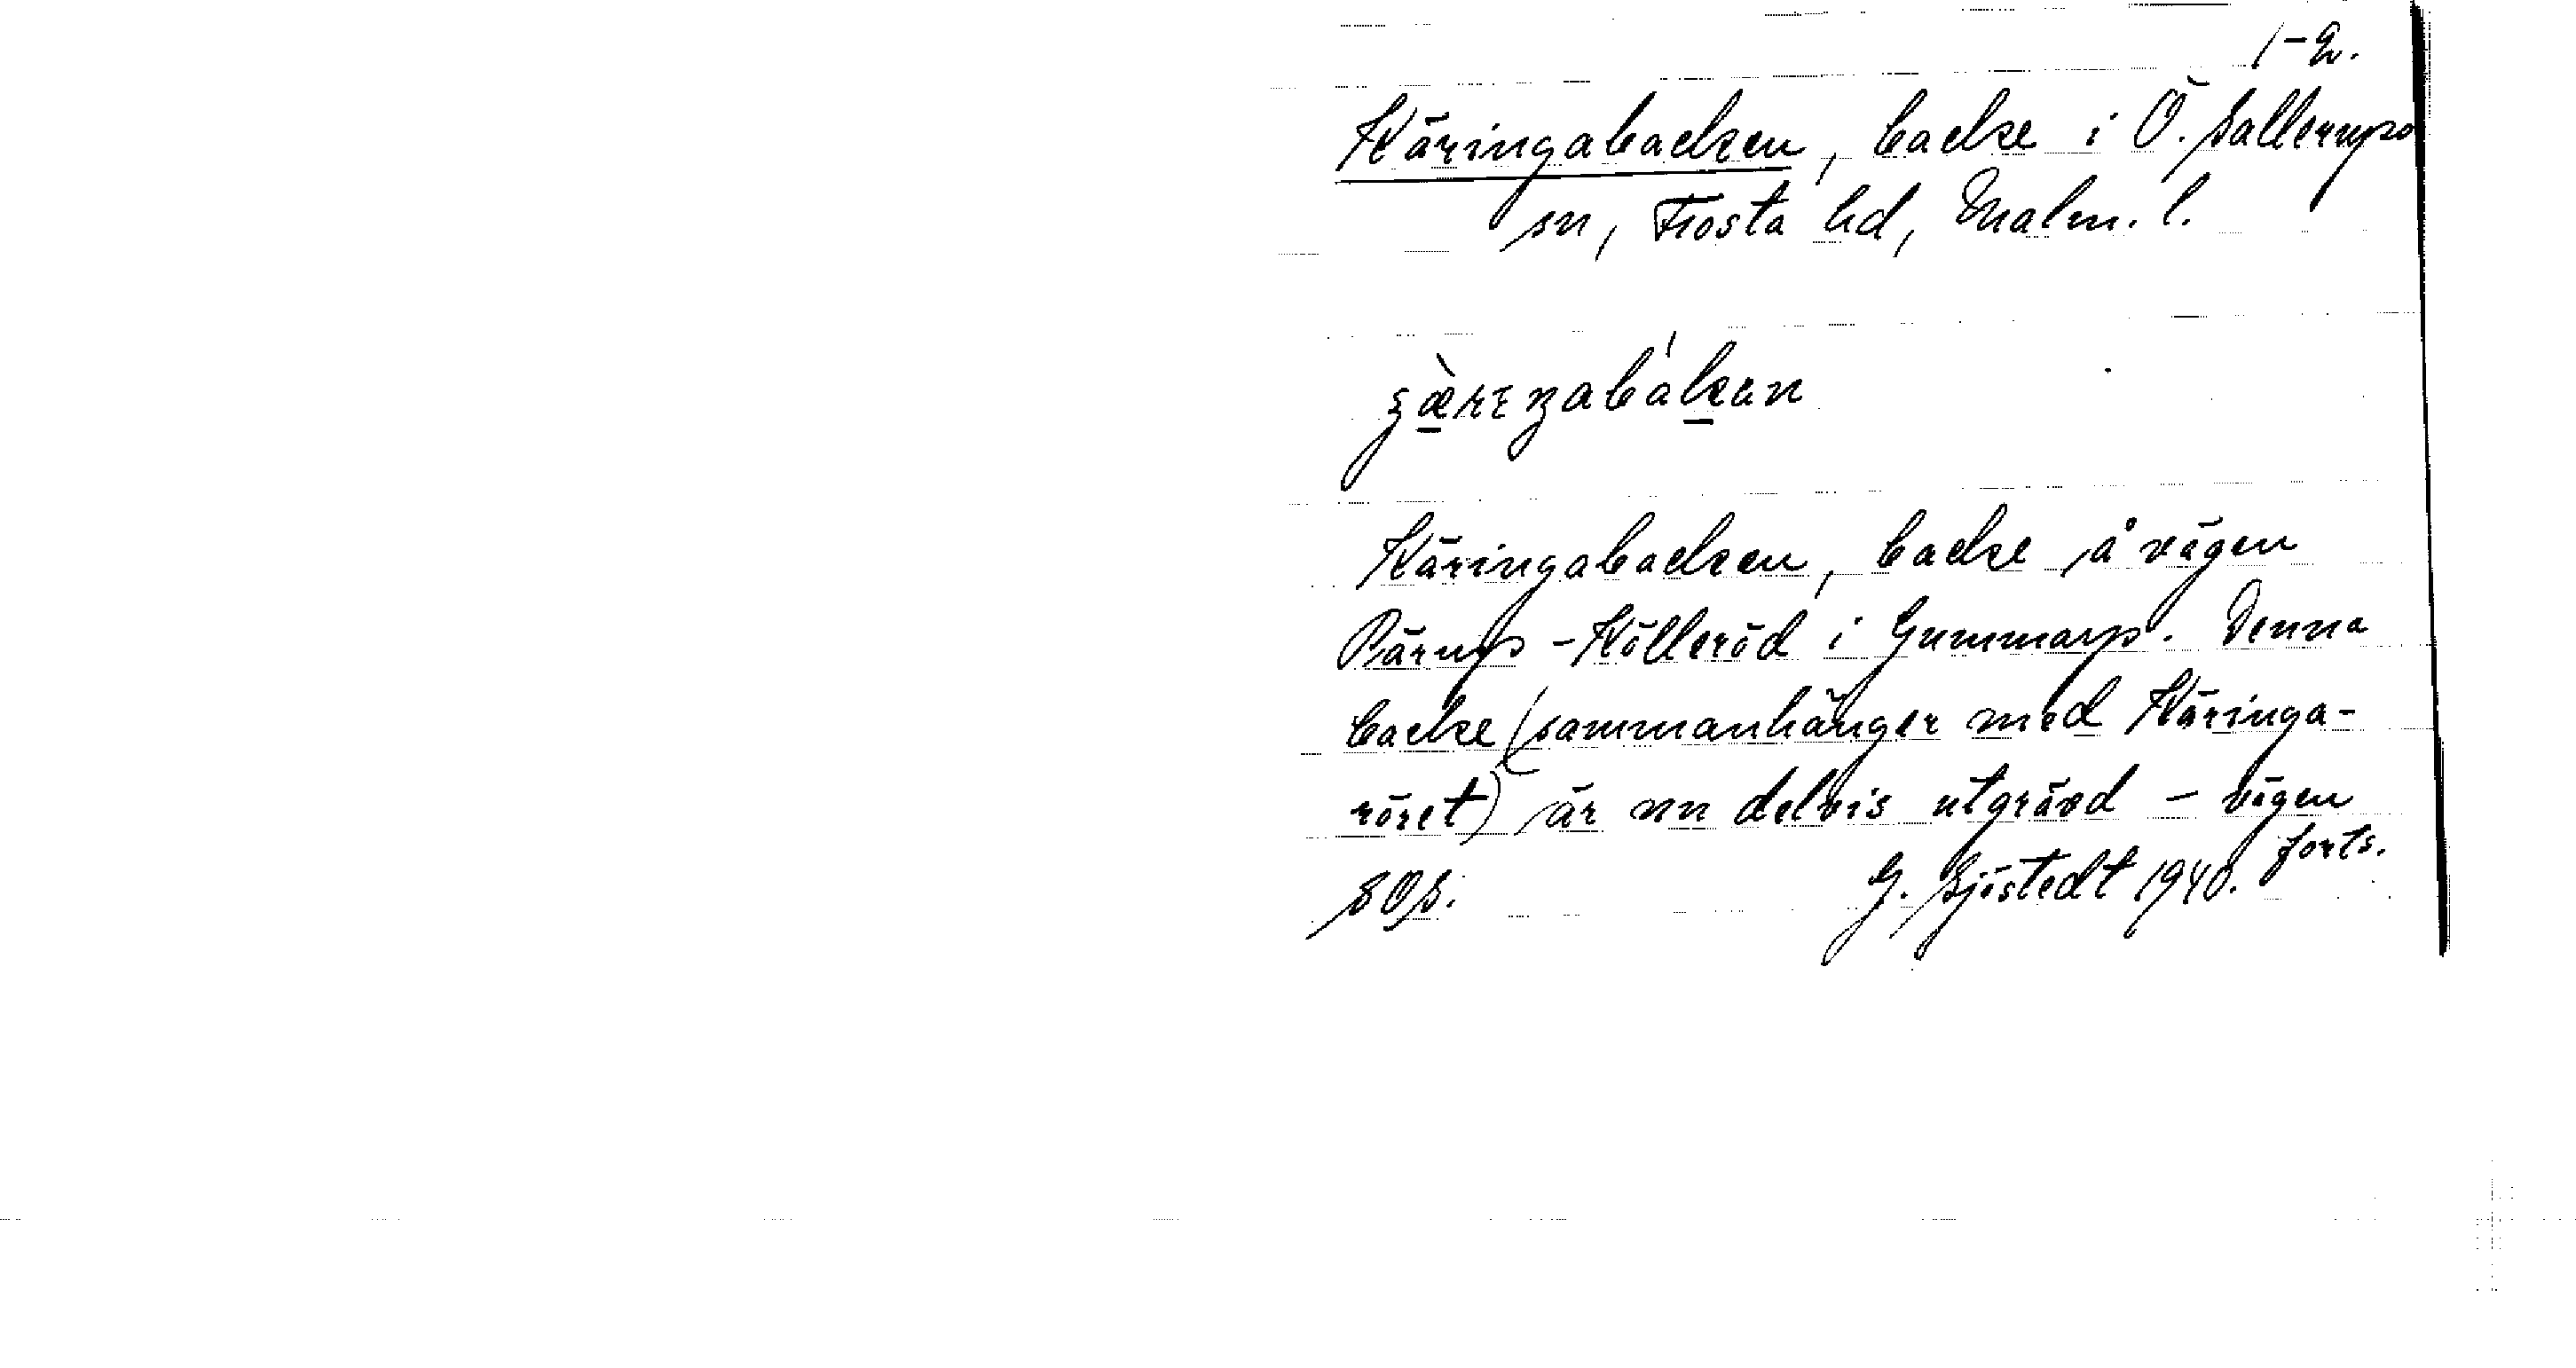 1-2.
Käringabacken, backe i Ö. Sallerups
sn, Frosta hd, Malm. l.
Käringabacken, backe å vägen
Pärup - Kölleröd i Gummarp. Denna
backe (sammanhänger med Käringa-
röret) är nu delvis utgrävd - vägen
forts.
SOS. G. Sjöstedt 1940.